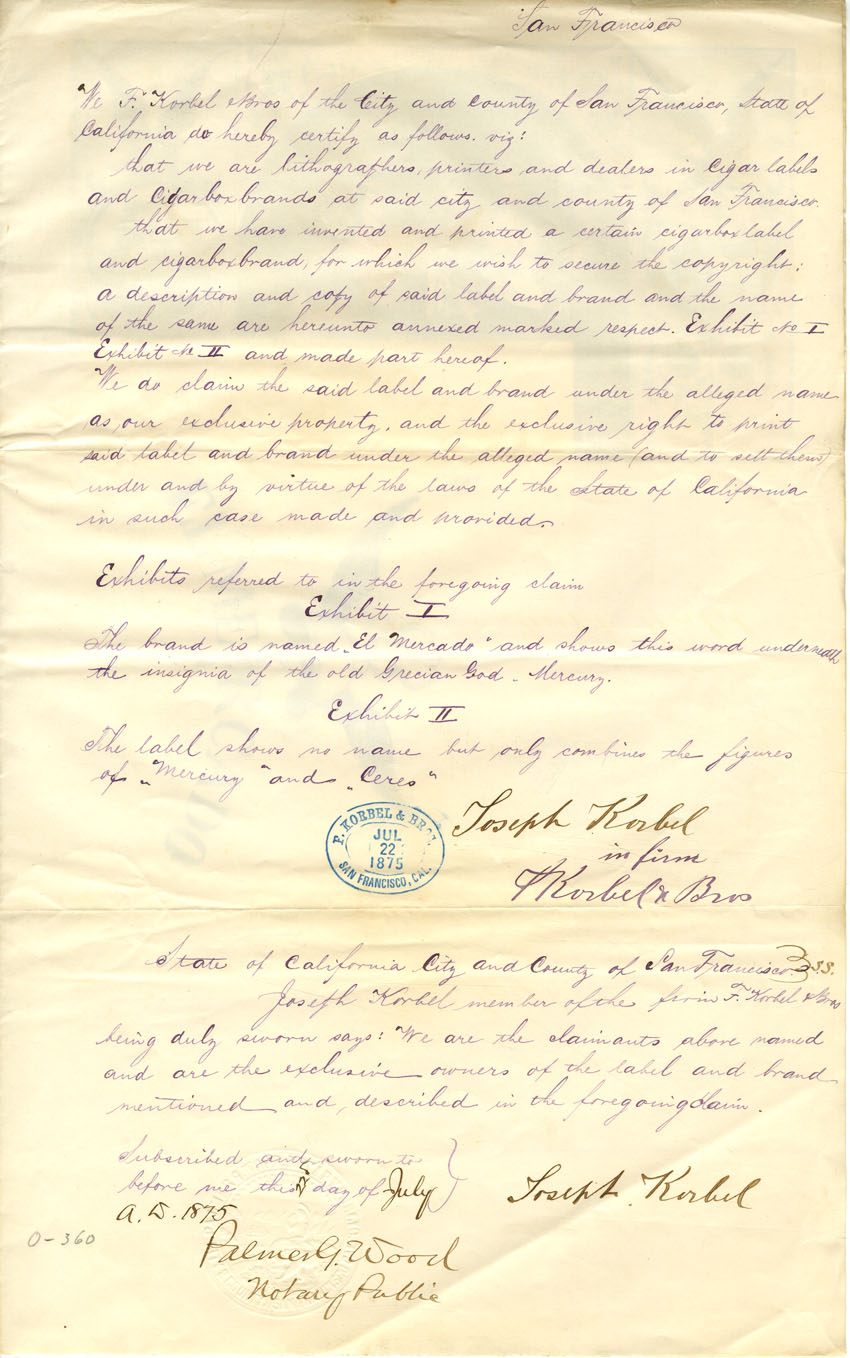 San Francisco
We F. Korbel & Bros of the City and County of San Francisco, State of
California do hereby certify as follows. viz:
that we are lithographers, printers and dealers in Cigar labels
and Cigarboxbrands at said city and county of San Francisco.
that we have invented and printed a certain cigarboxlabel
and cigarboxbrand, for which we wish to secure the copyright;
a description and copy of said label and brand and the name
of the same are hereunto annexed marked respect. Exhibit No I
Exhibit No II and made part hereof.
We do claim the said label and brand under the alleged name
as our exclusive property, and the exclusive right to print
said label and brand under the alleged name (and to sell them)
under and by virtue of the laws of the State of California
in such case made and provided.
Exhibits referred to in the foregoing claim
Exhibit I
The brand is named „El Mercado" and shows this word underneath
the insignia of the old Grecian God - Mercury.
Exhibit II
The label shows no name but only combines the figures
of „Mercury" and „Ceres"
F. KORBEL & BROS.
JUL
22
1875
SAN FRANCISCO, CAL.
Joseph Korbel
in firm
F Korbel & Bros
State of California City and County of San Francisco } S.S.
Joseph Korbel member of the firm F. Korbel & Bros
being duly sworn says: We are the claimants above named
and are the exclusive owners of the label and brand
mentioned and described in the foregoing claim.
Subscribed and sworn to
before me this day of July
A.D. 1875
Joseph Korbel
0-360
Palmer G. Wood
Notary Public